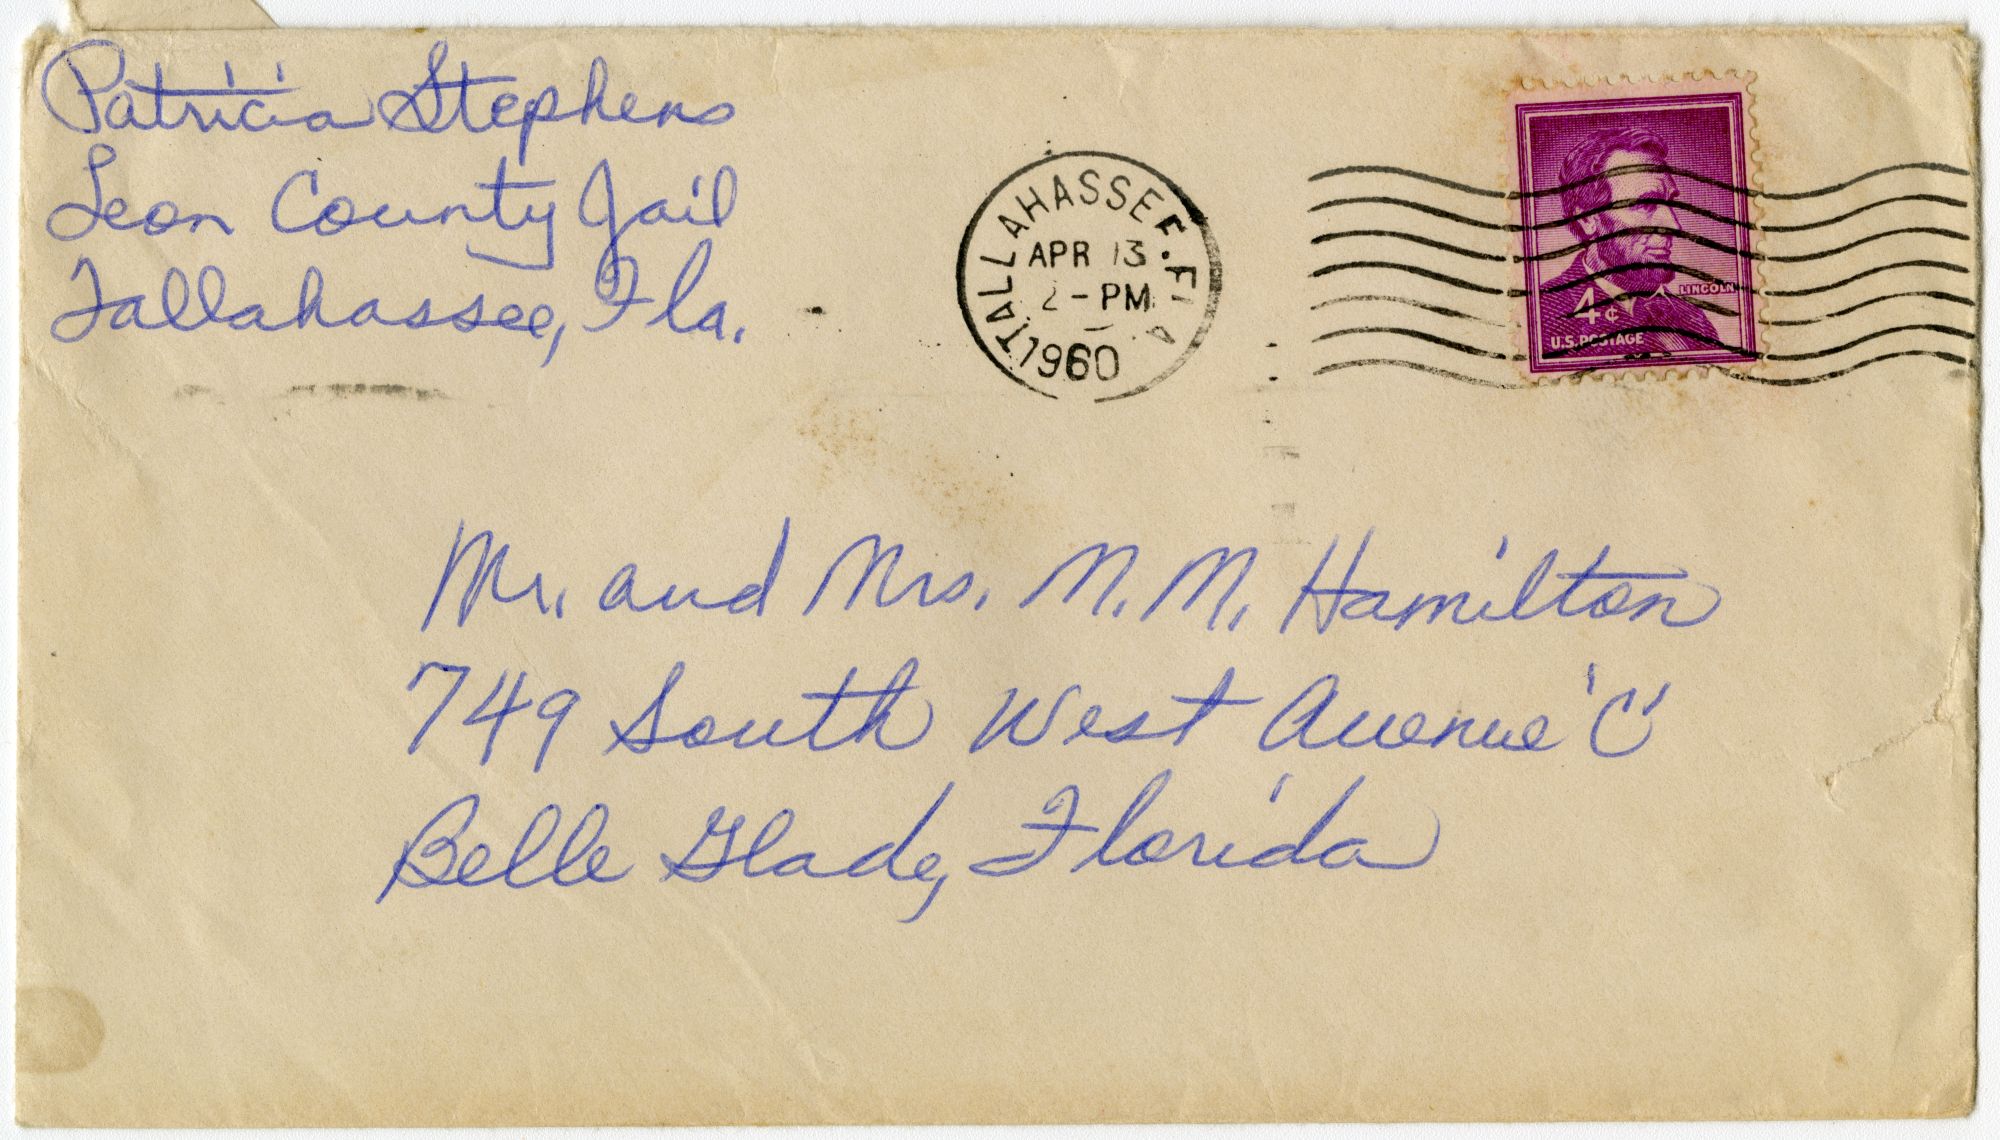 Patricia Stephens
Leon County Jail
Tallahassee, Fla.
TALLAHASSEE. FLA
APR 13
2 - PM
1960
LINCOLN
4¢
U.S. POSTAGE
Mr. and Mrs. M. M. Hamilton
749 South West Avenue 'C'
Belle Glade, Florida